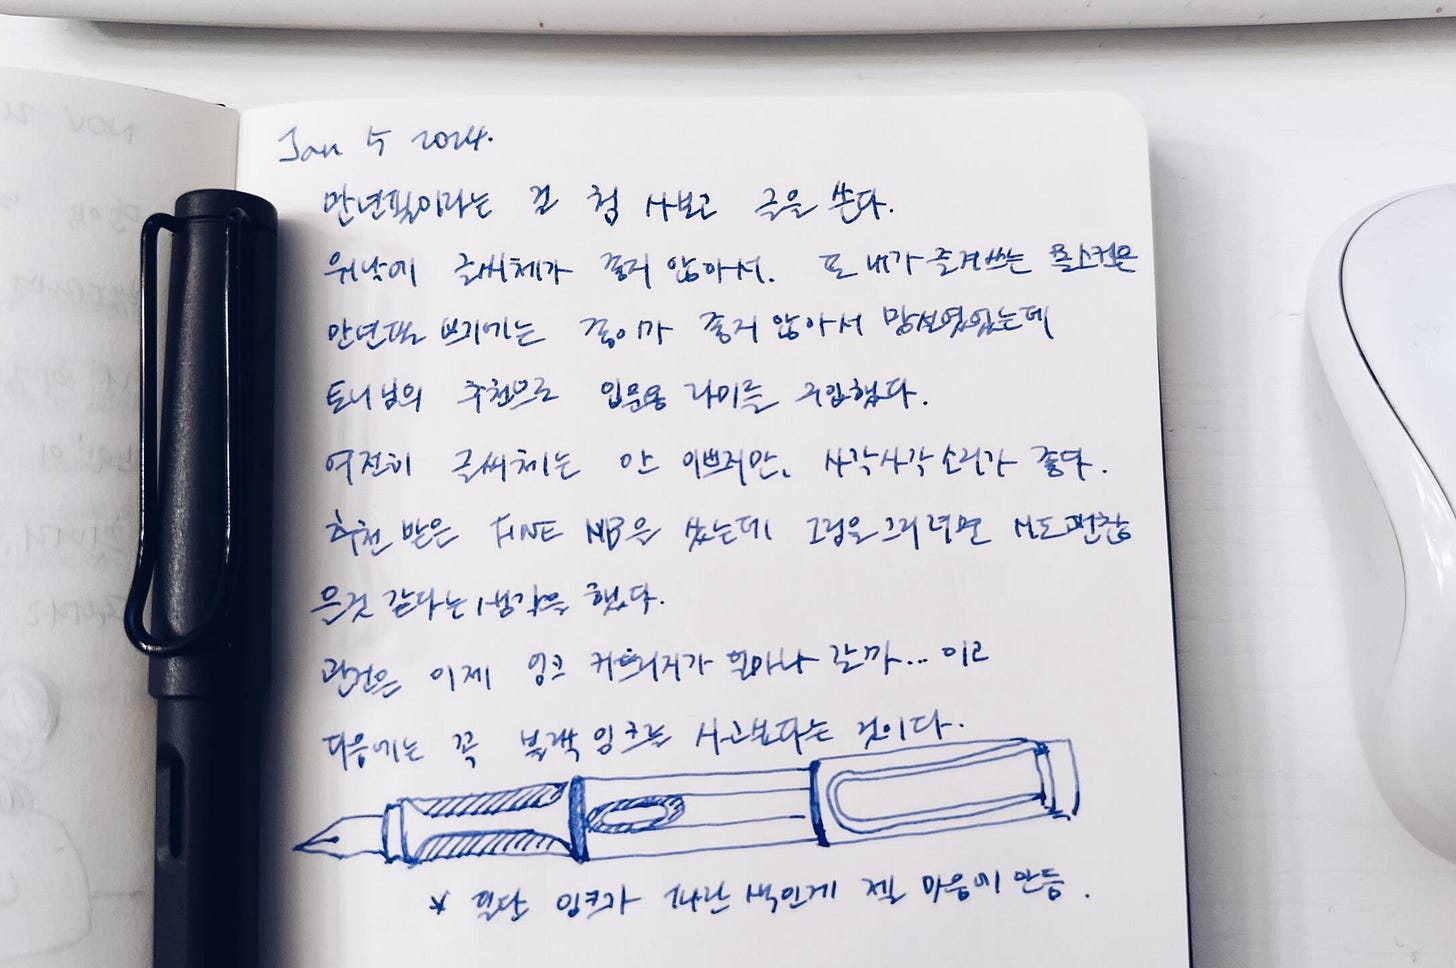 Jan 5 2024.
만년필이라는 걸 첨 사보고 글을 쓴다.
워낙에 글씨체가 좋지 않아서. 또 내가 즐겨쓰는 몰스킨은
만년필 쓰기에는 종이가 좋지 않아서 망설였었는데
토니님의 추천으로 입문용 라미를 구입했다.
여전히 글씨체는 안 이쁘지만, 사각사각 소리가 좋다.
추천 받은 FINE NIB을 샀는데 그림을 그리려면 M도 괜찮
은것 같다는 생각을 했다.
관건은 이제 잉크 카트리지가 얼마나 갈까... 이고
다음에는 꼭 블랙 잉크를 사고보다는 것이다.
* 일단 잉크가 파란 색인게 젤 마음에 안듬.
NOV